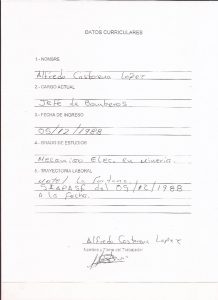 DATOS CURRICULARES
1.- NOMBRE
Alfredo Castorena Lopez
2.- CARGO ACTUAL
Jefe de Bomberos.
3.- FECHA DE INGRESO
05/12/1988
4.- GRADO DE ESTUDIOS
Mecanico Elec. en Mineria
5.- TRAYECTORIA LABORAL
Hotel La Fortuna
SIAPASF del 05/12/1988
A la Fecha.
Alfredo Castorena Lopez
Nombre y Firma del Trabajador